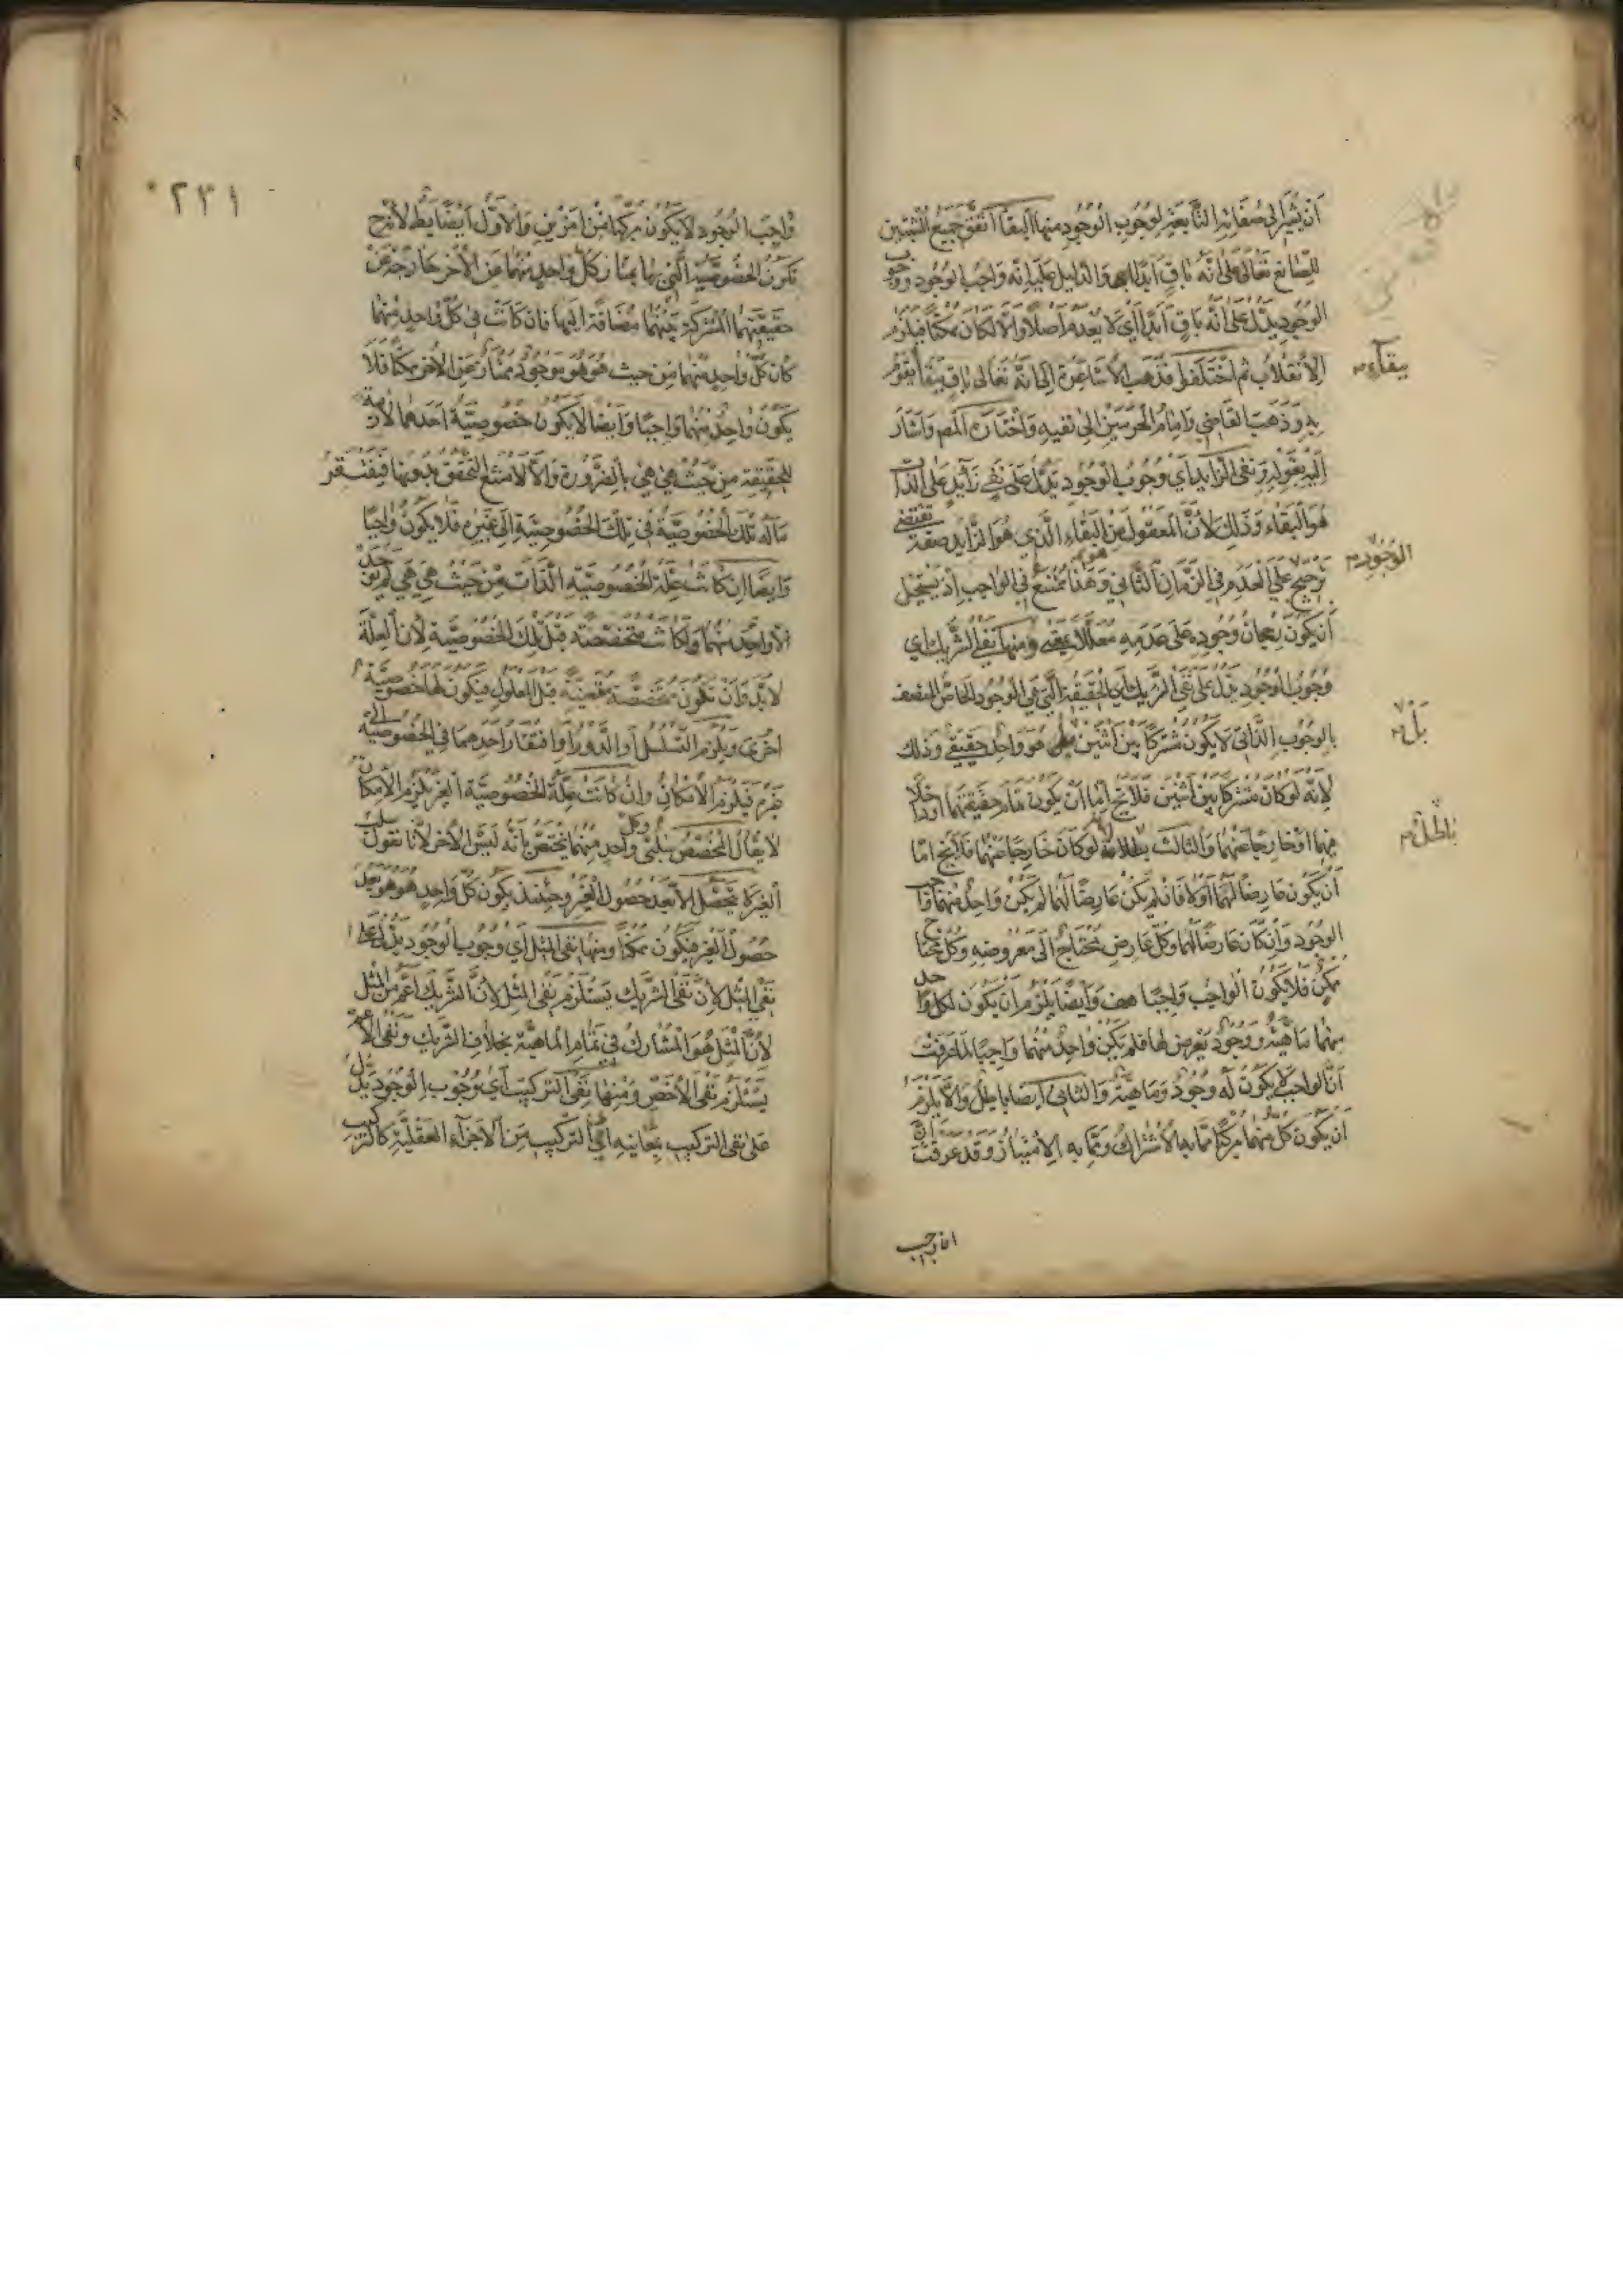 ان يشير الى صفاته التابعة لوجوب الوجود منها البقا اتفق جميع المثبتين
للصانع تعالى على انه باق ابدا والدليل عليه انه واجب الوجود ووجوب
الوجود يدل على انه باق ابدا اي لا يعدم اصلا والا لكان ممكنا فيلزم
الانقلاب ثم اختلفوا فذهب الاشاعرة الى انه تعالى باق ببقا يقوم
ببقاء
به وذهب القاضي وامام الحرمين الى نفيه واختاره المص واشار
اليه بقوله ونفى الزايد اي وجوب الوجود يدل على نفي زايد على الذات
هو البقاء وذلك لان المعقول من البقاء الذي هو الزايد صفة تقتضي
الوجود
ترجيح على العدم في الزمان الثاني وهذا ممتنع في الواجب اذ يستحيل
ان يكون رجحان وجوده على عدمه معللا ومنها نفي الشريك اي
وجوب الوجود يدل على نفي الشريك اي الحقيقة التي هي الوجود الخاص المتصف
بالوجوب الذاتي لا يكون مشتركا بين اثنين بل هو واحد حقيقي وذلك
بل
لانه لو كان مشتركا بين اثنين فلا يخ اما ان يكون تمام حقيقتهما او داخلا
فيهما او خارجا عنهما والثالث لانه لو كان خارجا عنهما فلا يخ اما
باطل
ان يكون عارضا لهما او لا فان لم يكن عارضا لهما لم يكن واحد منهما واجب
الوجود وان كان عارضا لهما وكل عارض محتاج الى معروضه وكل محتاج
ممكن فلا يكون الواجب واجبا هف وايضا يلزم ان يكون لكل واحد
منهما ماهية ووجود يعرض لها فلم يكن واحد منهما واجبا لما عرفت
ان الواجب لا يكون له وجود وماهية والثاني ايضا باطل والا يلزم
ان يكون كل منهما مركبا مما به الاشتراك ومما به الامتياز وقد عرفت ان
٢٣١
واجب الوجود لا يكون مركبا من امرين والاول ايضا بط لانه ح
تكون الخصوصية التي بها يمتاز كل واحد منهما عن الاخر خارجة عن
حقيقتهما المشتركة بينهما مضافة اليها فان كانت في كل واحد منهما
كان كل واحد منهما من حيث هو هو موجود ممتاز عن الاخر ممكنا فلا
يكون واحد منهما واجبا وايضا لا يكون خصوصية احدهما لازمة
للحقيقة من حيث هي هي بالضرورة والا لامتنع التحقق بدونها فيفتقر
ما له تلك الخصوصية في تلك الخصوصية الى غيره فلا يكون واجبا
وايضا ان كانت علة الخصوصية الذات من حيث هي هي لم يوجد
الا واحد منهما ولكانت متخصصة قبل تلك الخصوصية لان العلة
لابد وان تكون متخصصة متعينة قبل المعلول فيكون لها خصوصية
اخرى ويلزم التسلسل او الدور او افتقار احدهما في الخصوصية الى
غيره فيلزم الامكان وان كانت علة الخصوصية الغير يلزم الامكان
لا يقال المخصص سلبي وكل واحد منهما يختص بانه ليس الاخر لانا نقول سلب
الغير لا يتحصل الا بعد حصول الغير وحينئذ يكون كل واحد هو هو بعد
حصول الغير فيكون ممكنا ومنها نفى المثل اي وجوب الوجود يدل على
نفي المثل لان نفى الشريك يستلزم نفى المثل لان الشريك اعم من المثل
لان المثل هو المشارك في تمام الماهية بخلاف الشريك ونفى الاعم
يستلزم نفى الاخص ومنها نفى التركيب اي وجوب الوجود يدل
على نفى التركيب بمعانيه اي التركيب من الاجزاء العقلية كالتركيب